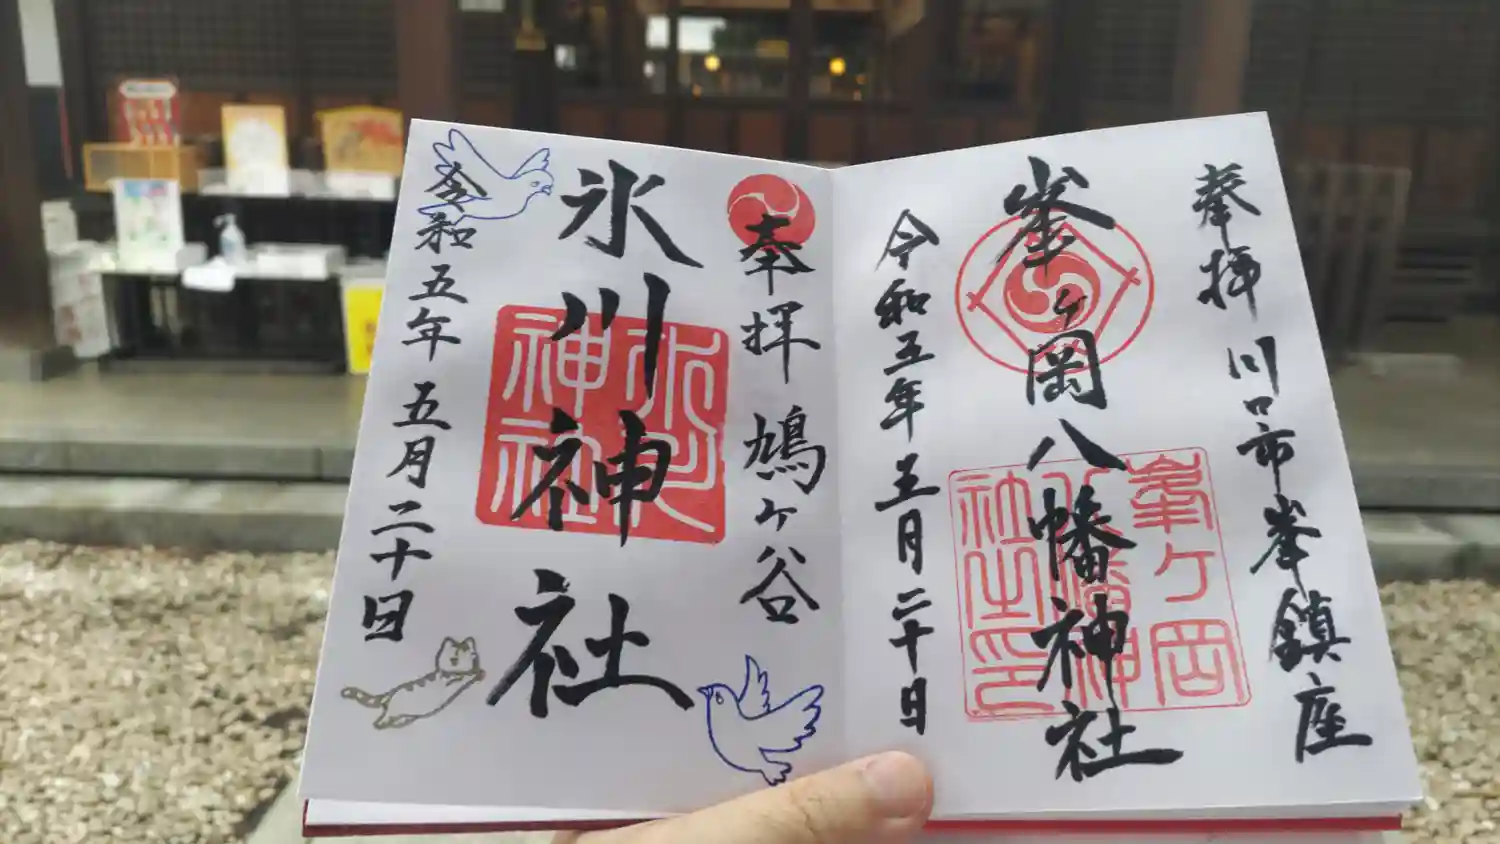 奉拝 川口市峯鎮座
峯ヶ岡八幡神社
令和五年五月二十日
峯ヶ岡
八幡神
社之印
奉拝 鳩ヶ谷
氷川神社
氷川
神社
令和五年 五月二十日